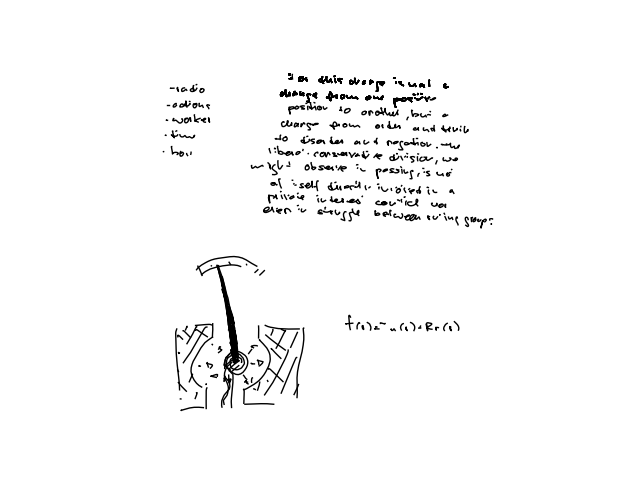 -radio
-actions
-worker
-time
this change is not a
change from one
position to another, but a
change from order and
to disorder and negation. the
liberal-conservative division, we
might observe in passing, is not
of itself directly involved in a
private interest conflict nor
even in struggle between ruling groups.